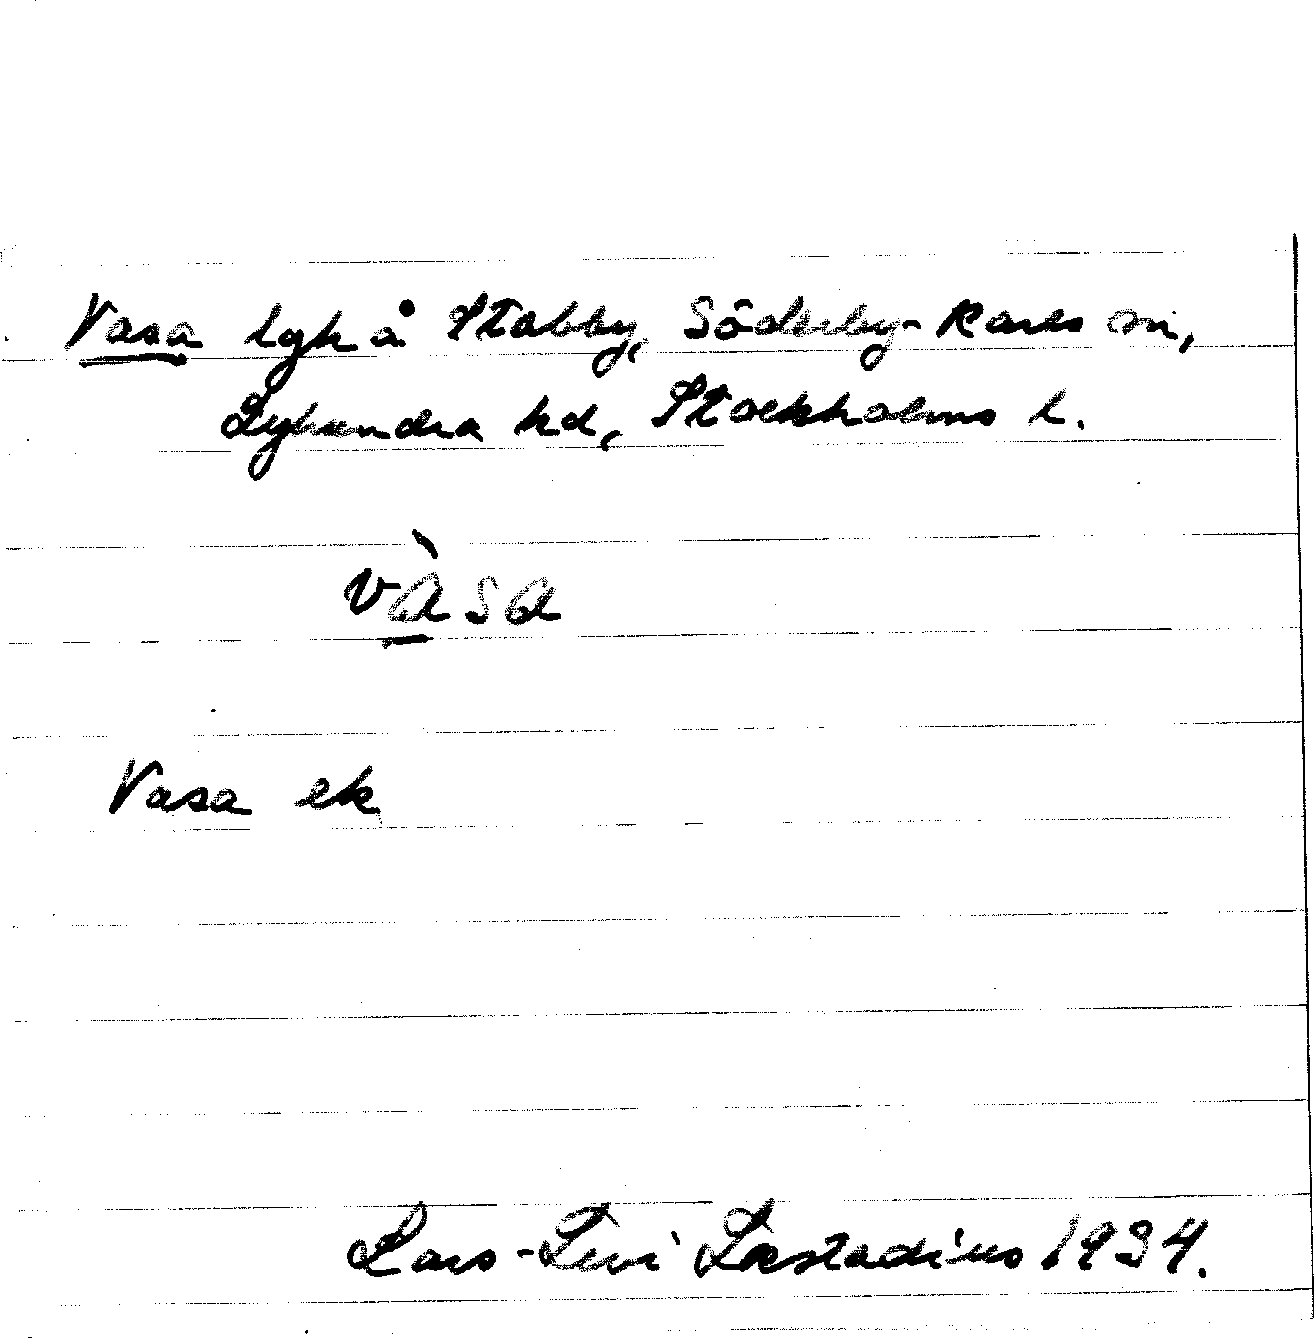 Vasa lgh å Stabby, Söderby-Karls sn,
Lyhundra hd, Stockholms l.
vàsa
Vasa ek
Lars-Levi Læstadius 1934.